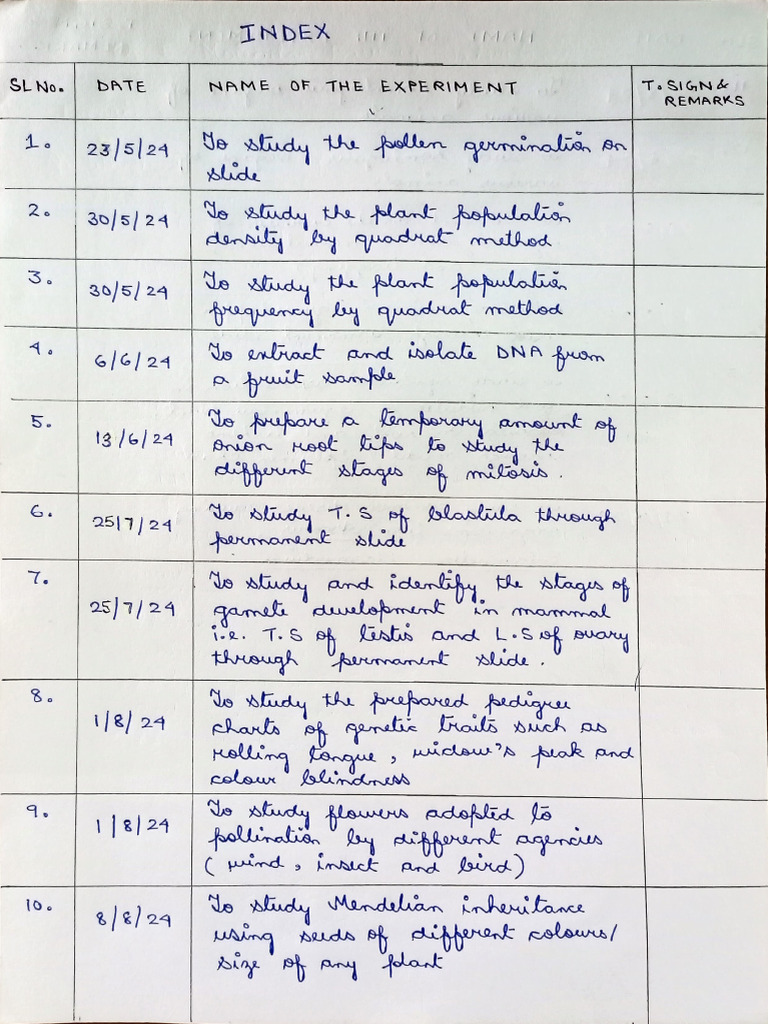 INDEX
SL No. DATE NAME OF THE EXPERIMENT T. SIGN &
REMARKS
1. 23/5/24 To study the pollen germination on
slide
2. 30/5/24 To study the plant population
density by quadrat method
3. 30/5/24 To study the plant population
frequency by quadrat method
4. 6/6/24 To extract and isolate DNA from
a fruit sample.
5. 13/6/24 To prepare a temporary amount of
onion root tips to study the
different stages of mitosis.
6. 25/7/24 To study T.S of blastula through
permanent slide
7. 25/7/24 To study and identify the stages of
gamete development in mammal
i.e. T.S of testis and L.S of ovary
through permanent slide.
8. 1/8/24 To study the prepared pedigree
charts of genetic traits such as
rolling tongue, widow's peak and
colour blindness
9. 1/8/24 To study flowers adopted to
pollination by different agencies
(wind, insect and bird)
10. 8/8/24 To study Mendelian inheritance
using seeds of different colours/
size of any plant